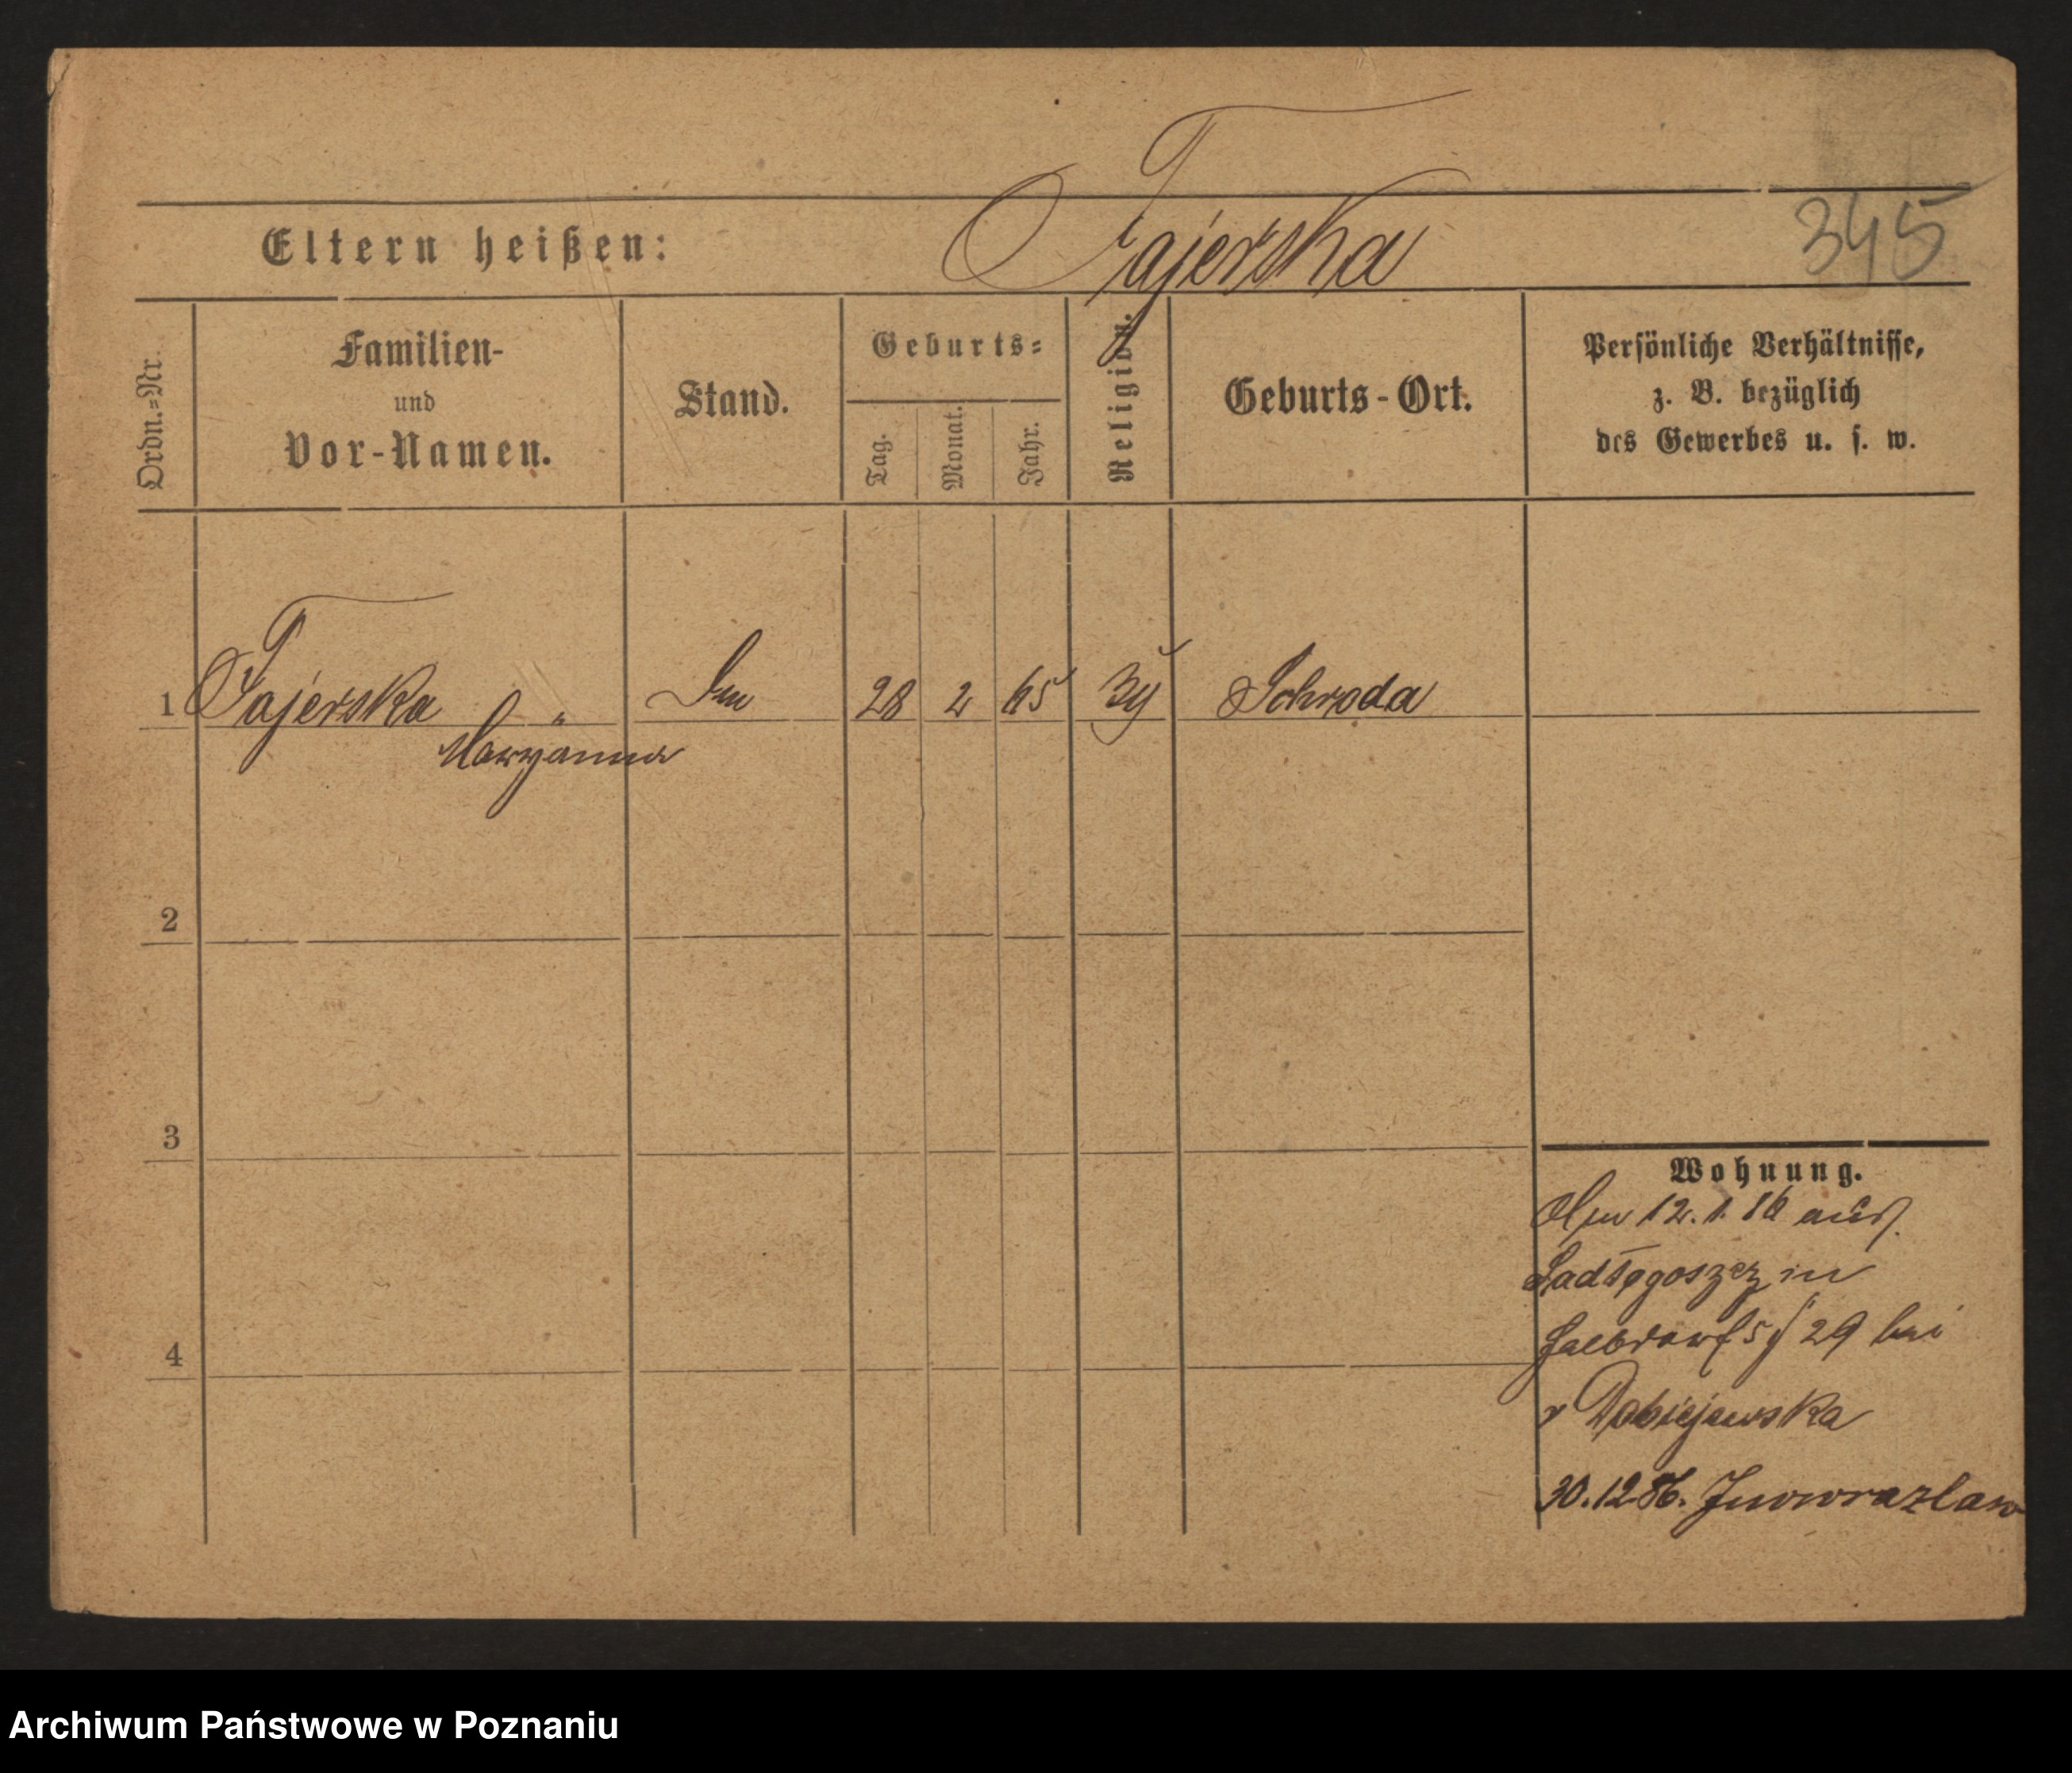 Eltern heißen: Fajerska 345
Ordn.=Nr.
Familien-
und
Vor-Namen.
Stand.
Geburts=
Tag.
Monat.
Jahr.
Religion.
Geburts-Ort.
Persönliche Verhältnisse,
z. B. bezüglich
des Gewerbes u. s. w.
1 Fajerska " 28 2 65 Schroda
Maryanna
2
3
4
Wohnung.
12. 1. 86 aus
in
29 bei
30.12.86. Inowrazlaw
Archiwum Państwowe w Poznaniu